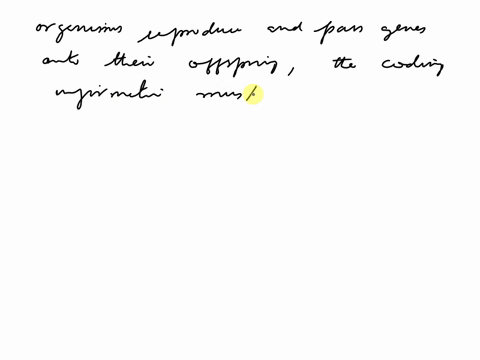 organisms reproduce and pass genes
onto their offspring, the coding
information mus